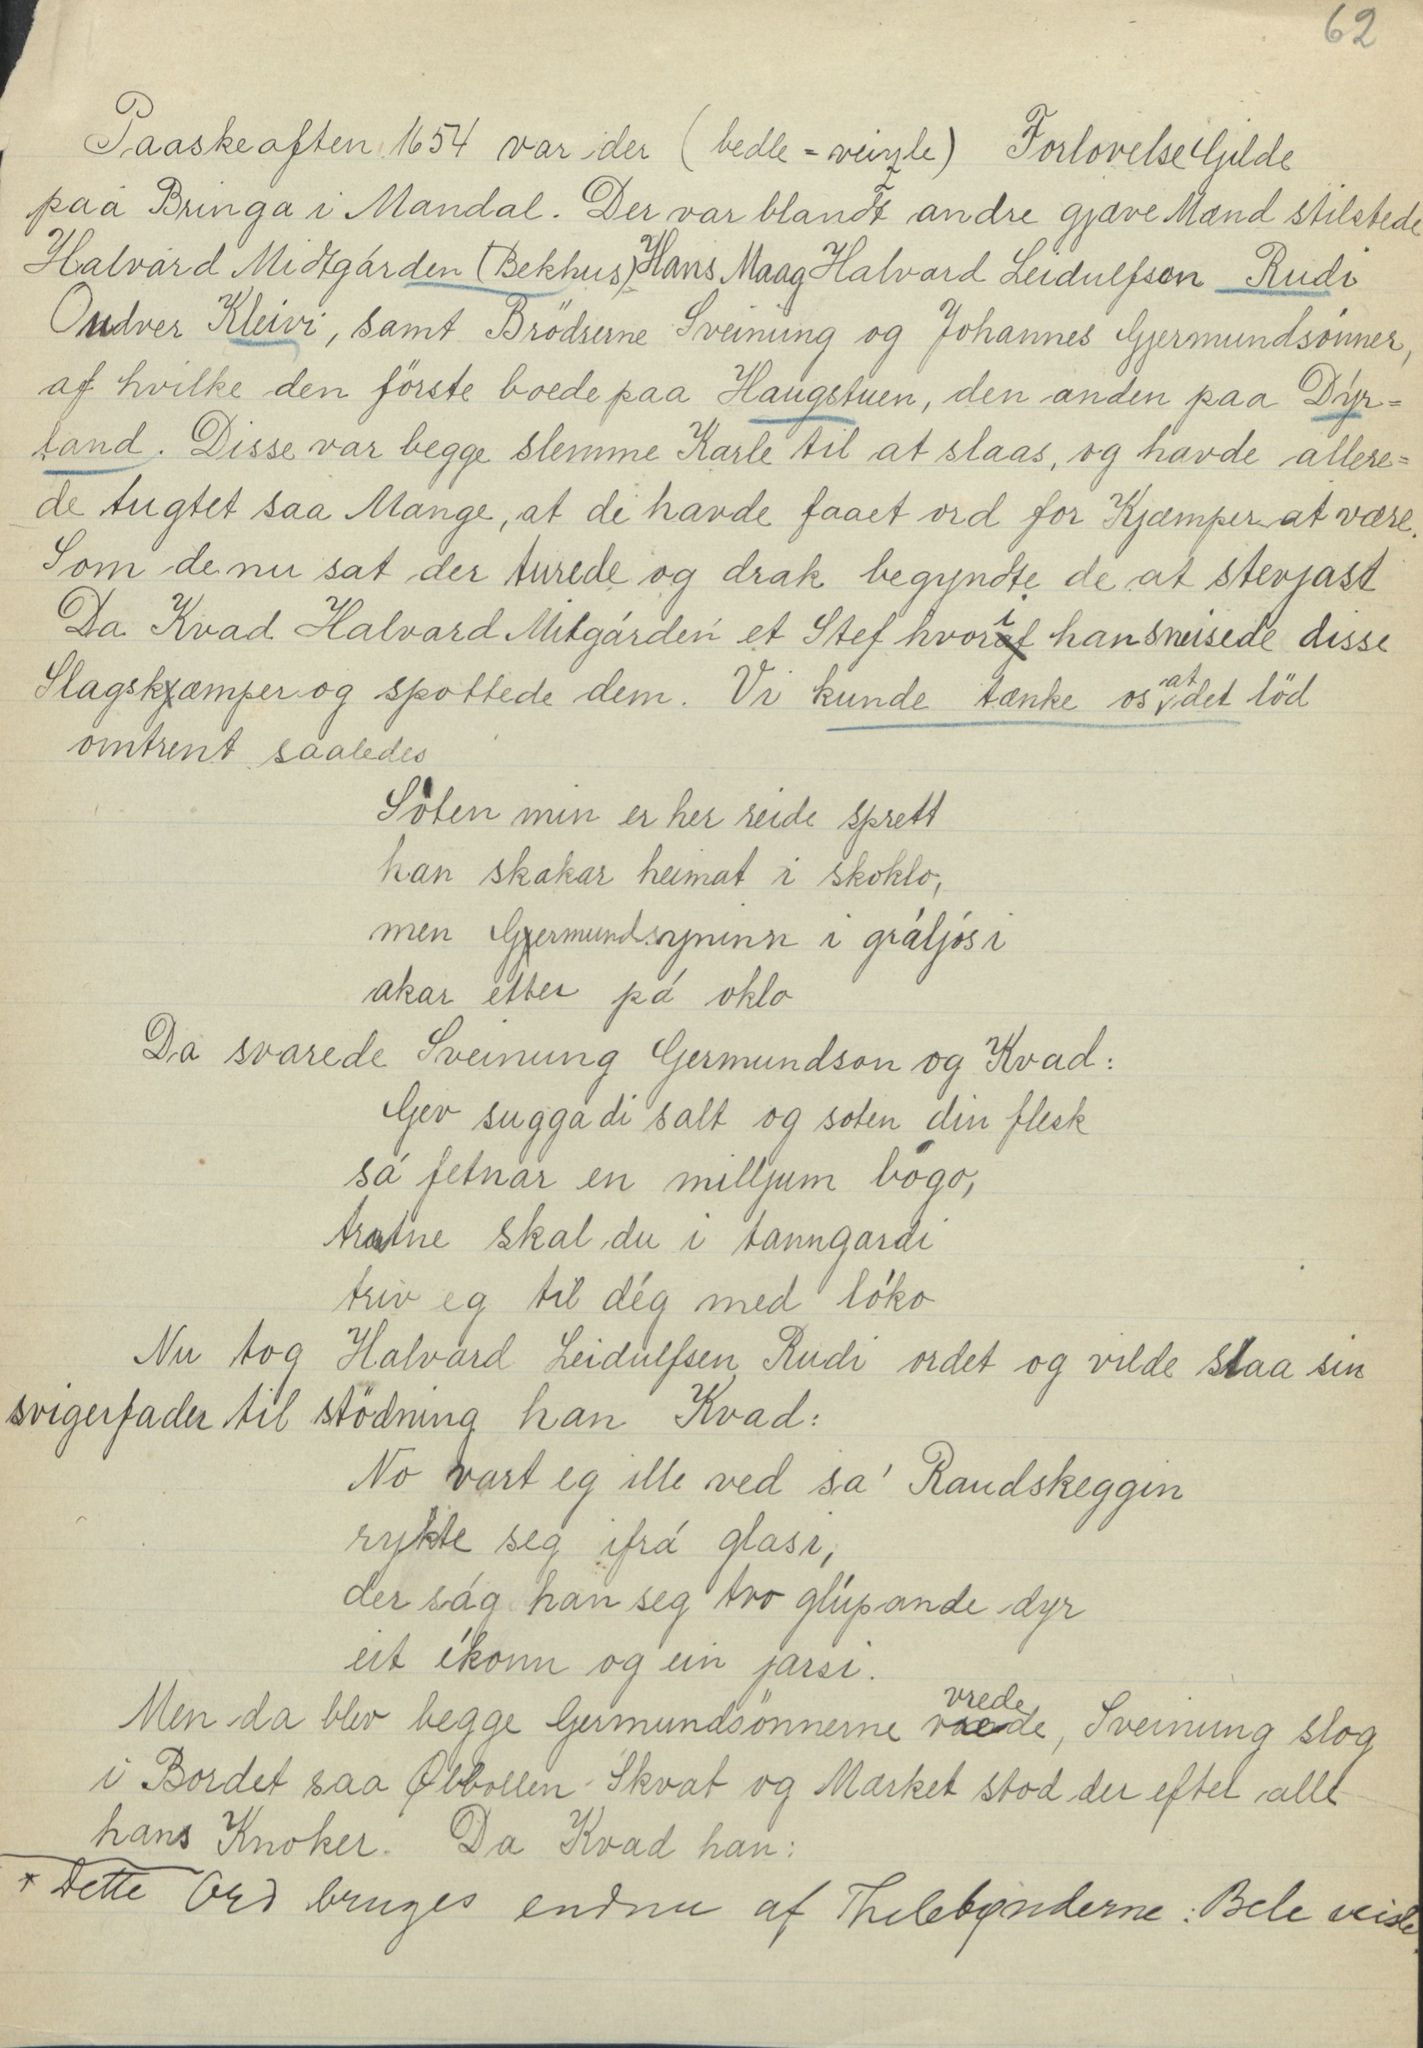 62
Paaskeaften 1654 var der (bedle = veizle) Forlovelse Gjilde
paa Bringa i Mandal. Der var blandt andre gjæve Mænd stilstede
Halvard Midtgárden (Bekhus) Hans Maag Halvard Leidulfsen Rudi
Oudver Kleivi, samt Brödrerne Sveinung og Johannes Gjermundsönner,
af hvilke den förste boede paa Haugstuen, den anden paa Dyr=
land. Disse var begge slemme Karle til at slaas, og havde allere=
de tugtet saa Mange, at di havde faaet ord for Kjæmper at være.
Som de nu sat der turede og drak begyndte de at stevjast
Da Kvad Halvard Mitgárden et Stef hvori han sneisede disse
Slagskjæmper og spottede dem. Vi kunde tænke os at det löd
omtrent saaledes
Soten min er her reide sprett
han skakar heimat i skoklo,
men Gjermundsyninn i gráljósi
akar etter pá oklo
Da svarede Sveinung Germundson og Kvad:
Gev sugga di salt og soten din flesk
sá fetnar en milljum bógo,
tratne skal du i tanngardi
triv eg til dég med lóko
Nu tog Halvard Leidulfsen Rudi ordet og vilde slaa sin
svigerfader til stödning han Kvad:
No vart eg ille ved sa' Raudskeggin
rykte seg ifrá glasi,
der ság han seg tvo glúpande dyr
eit íkonn og ein jarsi.
Men da blev begge Germundsönnerne vrede, Sveinung slog
i Bordet saa Ølbollen Skvat og Mærket stod der efter alle
hans Knoker. Da Kvad han:
* Dette Ord bruges endnu af Thelebønderne: Bele veisle.